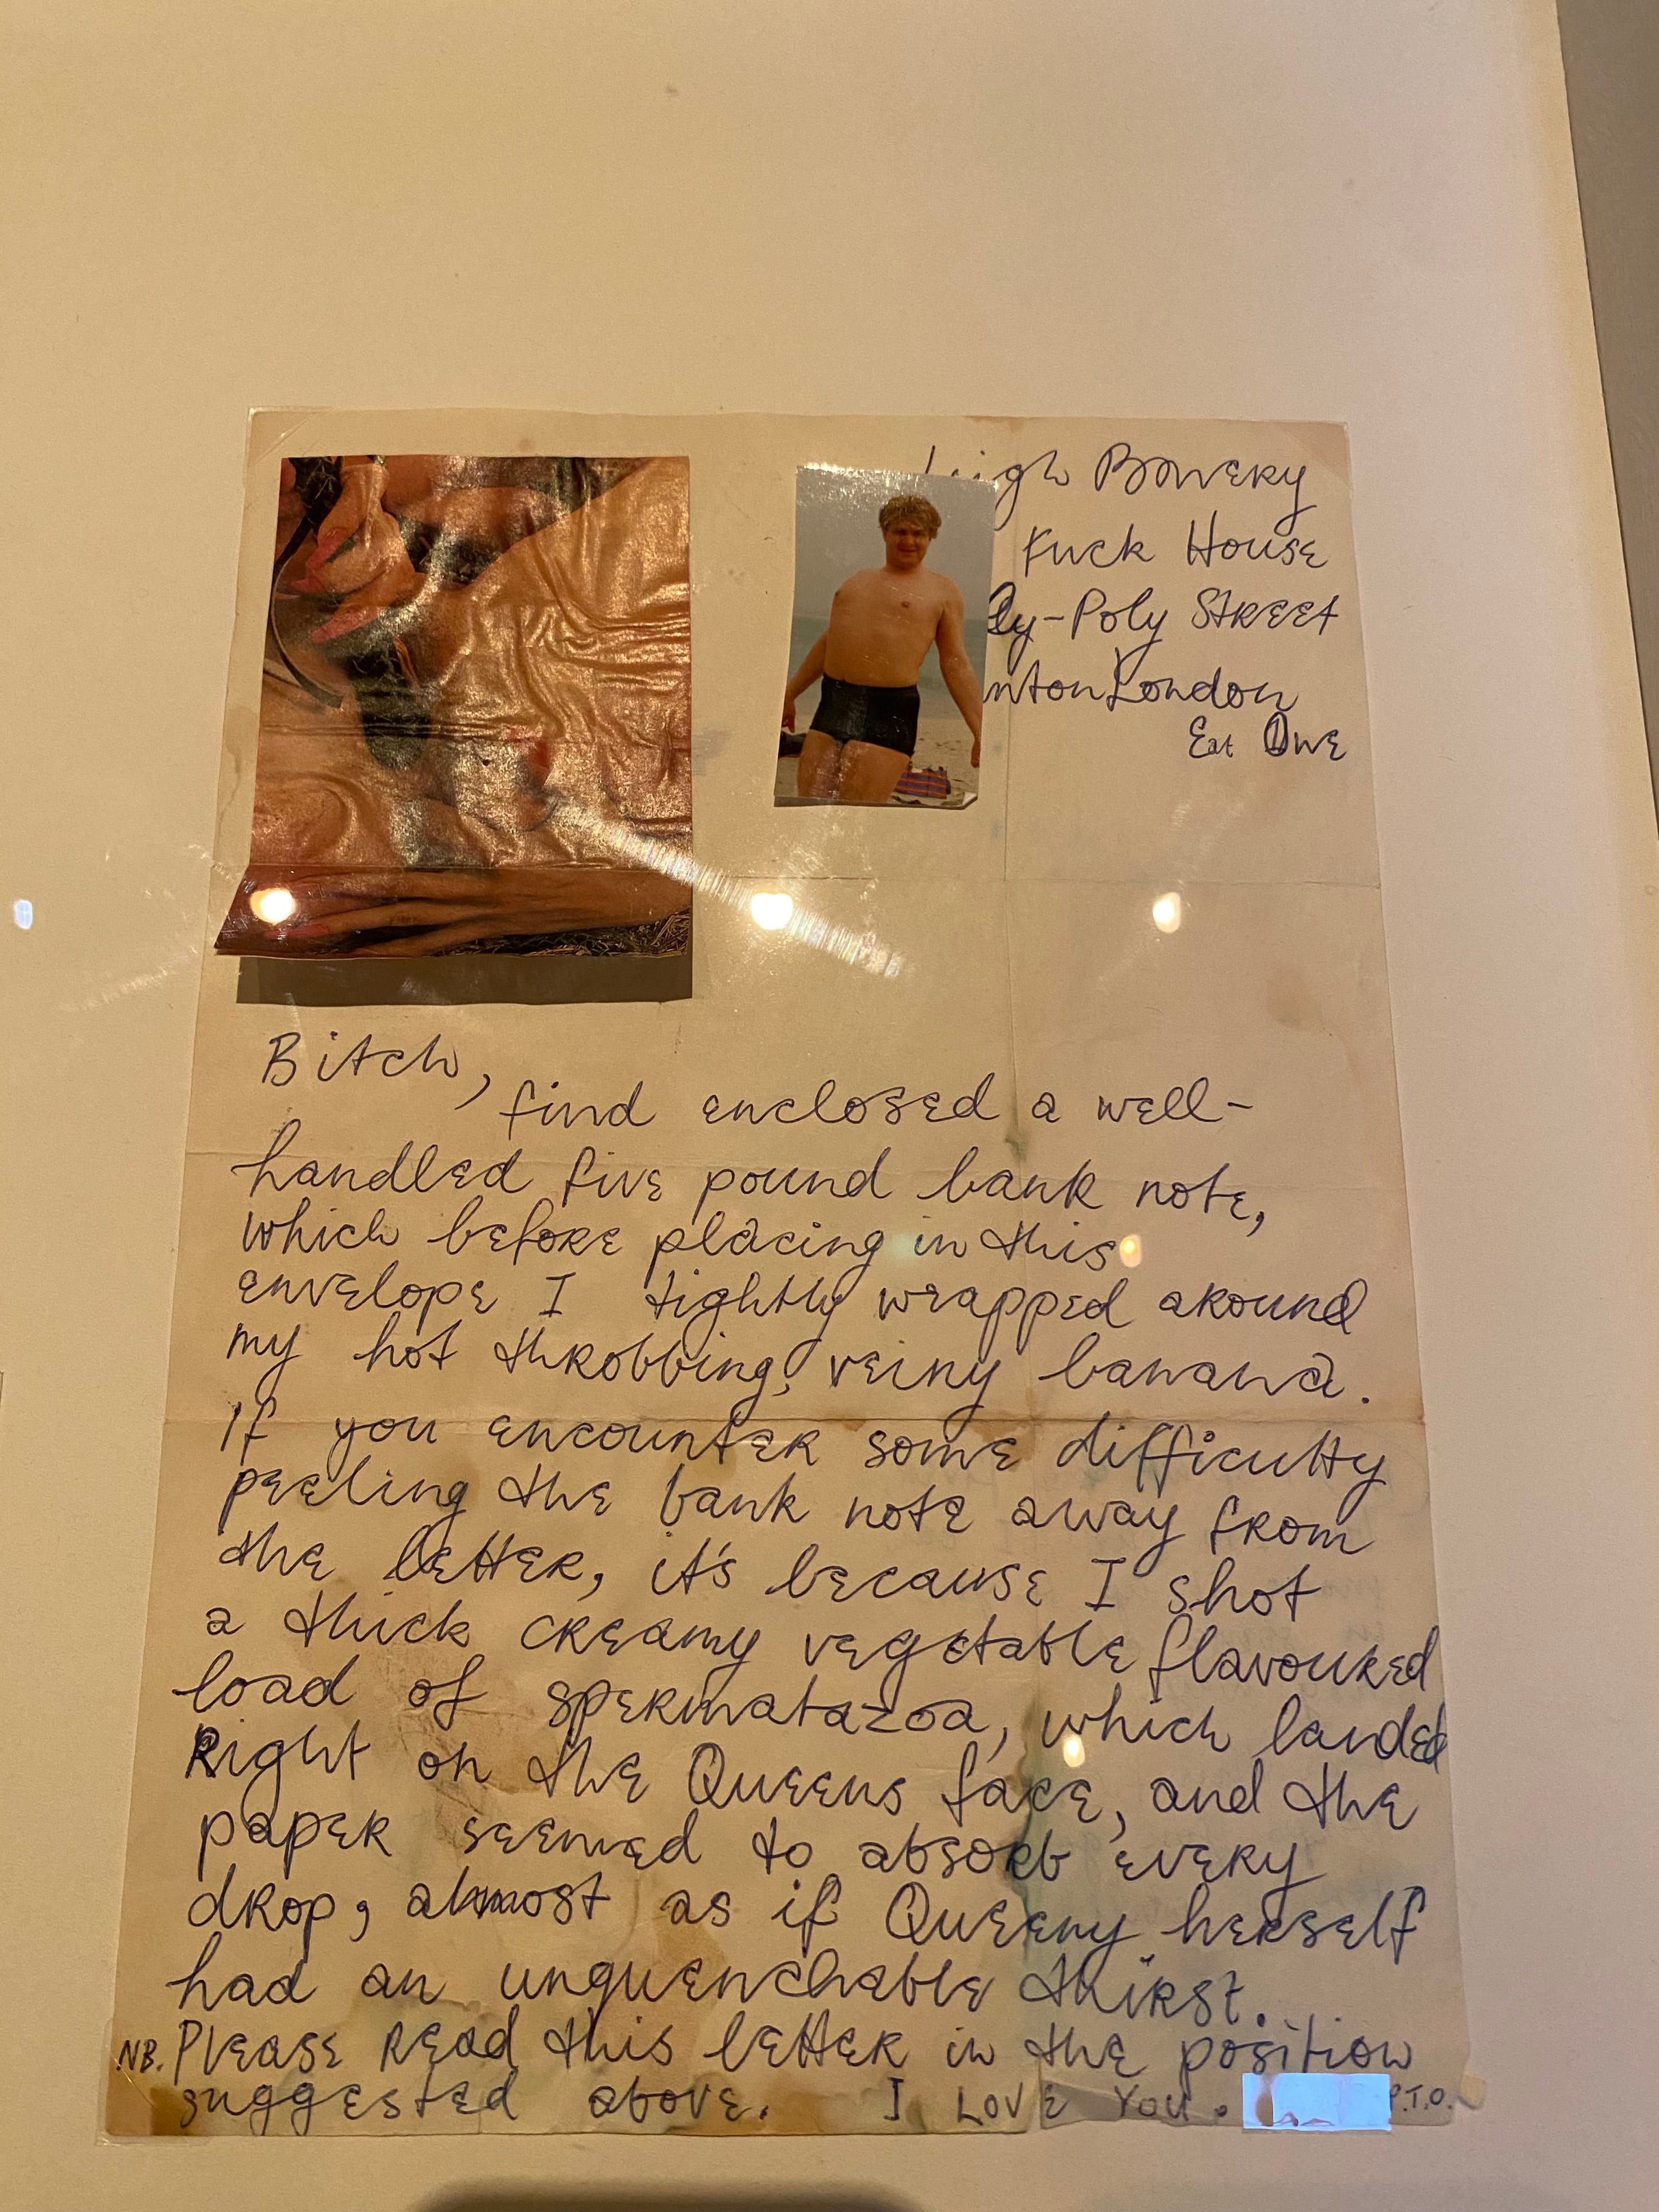 Leigh Bowery
Fuck House
ly-Poly Street
nton London
Eat One
Bitch,
find enclosed a well-
handled five pound bank note,
which before placing in this
envelope I tightly wrapped around
my hot throbbing, veiny banana.
If you encounter some difficulty
peeling the bank note away from
the letter, it's because I shot
a thick creamy vegetable flavoured
load of spermatazoa, which landed
Right on the Queens face, and the
paper seemed to absorb every
drop, almost as if Queeny herself
had an unquenchable thirst.
NB. Please read this letter in the position
suggested above. I LOVE YOU. P.T.O.